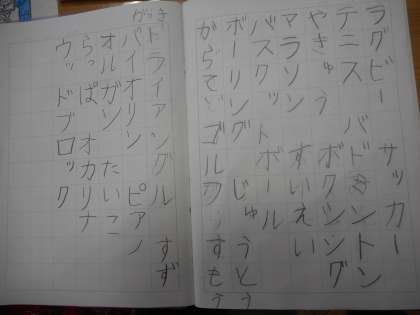 ラグビー サッカー
テニス バドミントン
やきゅう ボクシング
マラソン すいえい
バスケットボール
ボーリング じゅうどう
からて ゴルフ すもう
がっき
トライアングル すず
バイオリン ピアノ
オルガン たいこ
らっぱ オカリナ
ウッドブロック